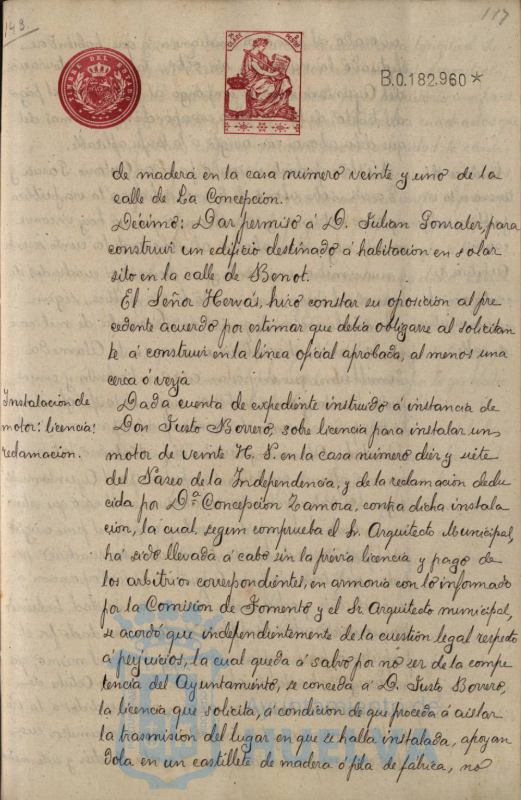 143.
117
TIMBRE DEL ESTADO
CLASE
PESETA
B.0.182.960*
de madera en la casa número veinte y uno de la
calle de La Concepcion.
Décimo: Dar permiso á D. Julian Gonzalez, para
construir un edificio destinado á habitacion en solar
sito en la calle de Benot.
El Señor Hervás, hizo constar su oposición al pre
cedente acuerdo por estimar que debia obligarse al solicitan
te á construir en la línea oficial aprobada, al menos una
cerca ó verja
Instalación de
motor: licencia:
reclamacion.
Dada cuenta de expediente instruido á instancia de
Don Justo Borrero, sobre licencia para instalar un
motor de veinte H. P. en la casa número diez y siete
del Paseo de la Independencia, y de la reclamacion dedu
cida por D.ª Concepcion Zamora, contra dicha instala
cion, la cual, segun comprueba el Sr. Arquitecto Municipal,
há sido llevada á cabo sin la prévia licencia y pago de
los arbitrios correspondientes, en armonia con lo informado
por la Comision de Fomento y el Sr. Arquitecto municipal,
se acordó que independientemente de la cuestión legal respecto
á perjuicios, la cual queda á salvo por no ser de la compe
tencia del Ayuntamiento, se conceda á D. Justo Borrero,
la licencia que solicita, á condicion de que proceda á aislar
la trasmision del lugar en que se halla instalada, apoyan
dola en un castillete de madera ó pila de fábrica, no